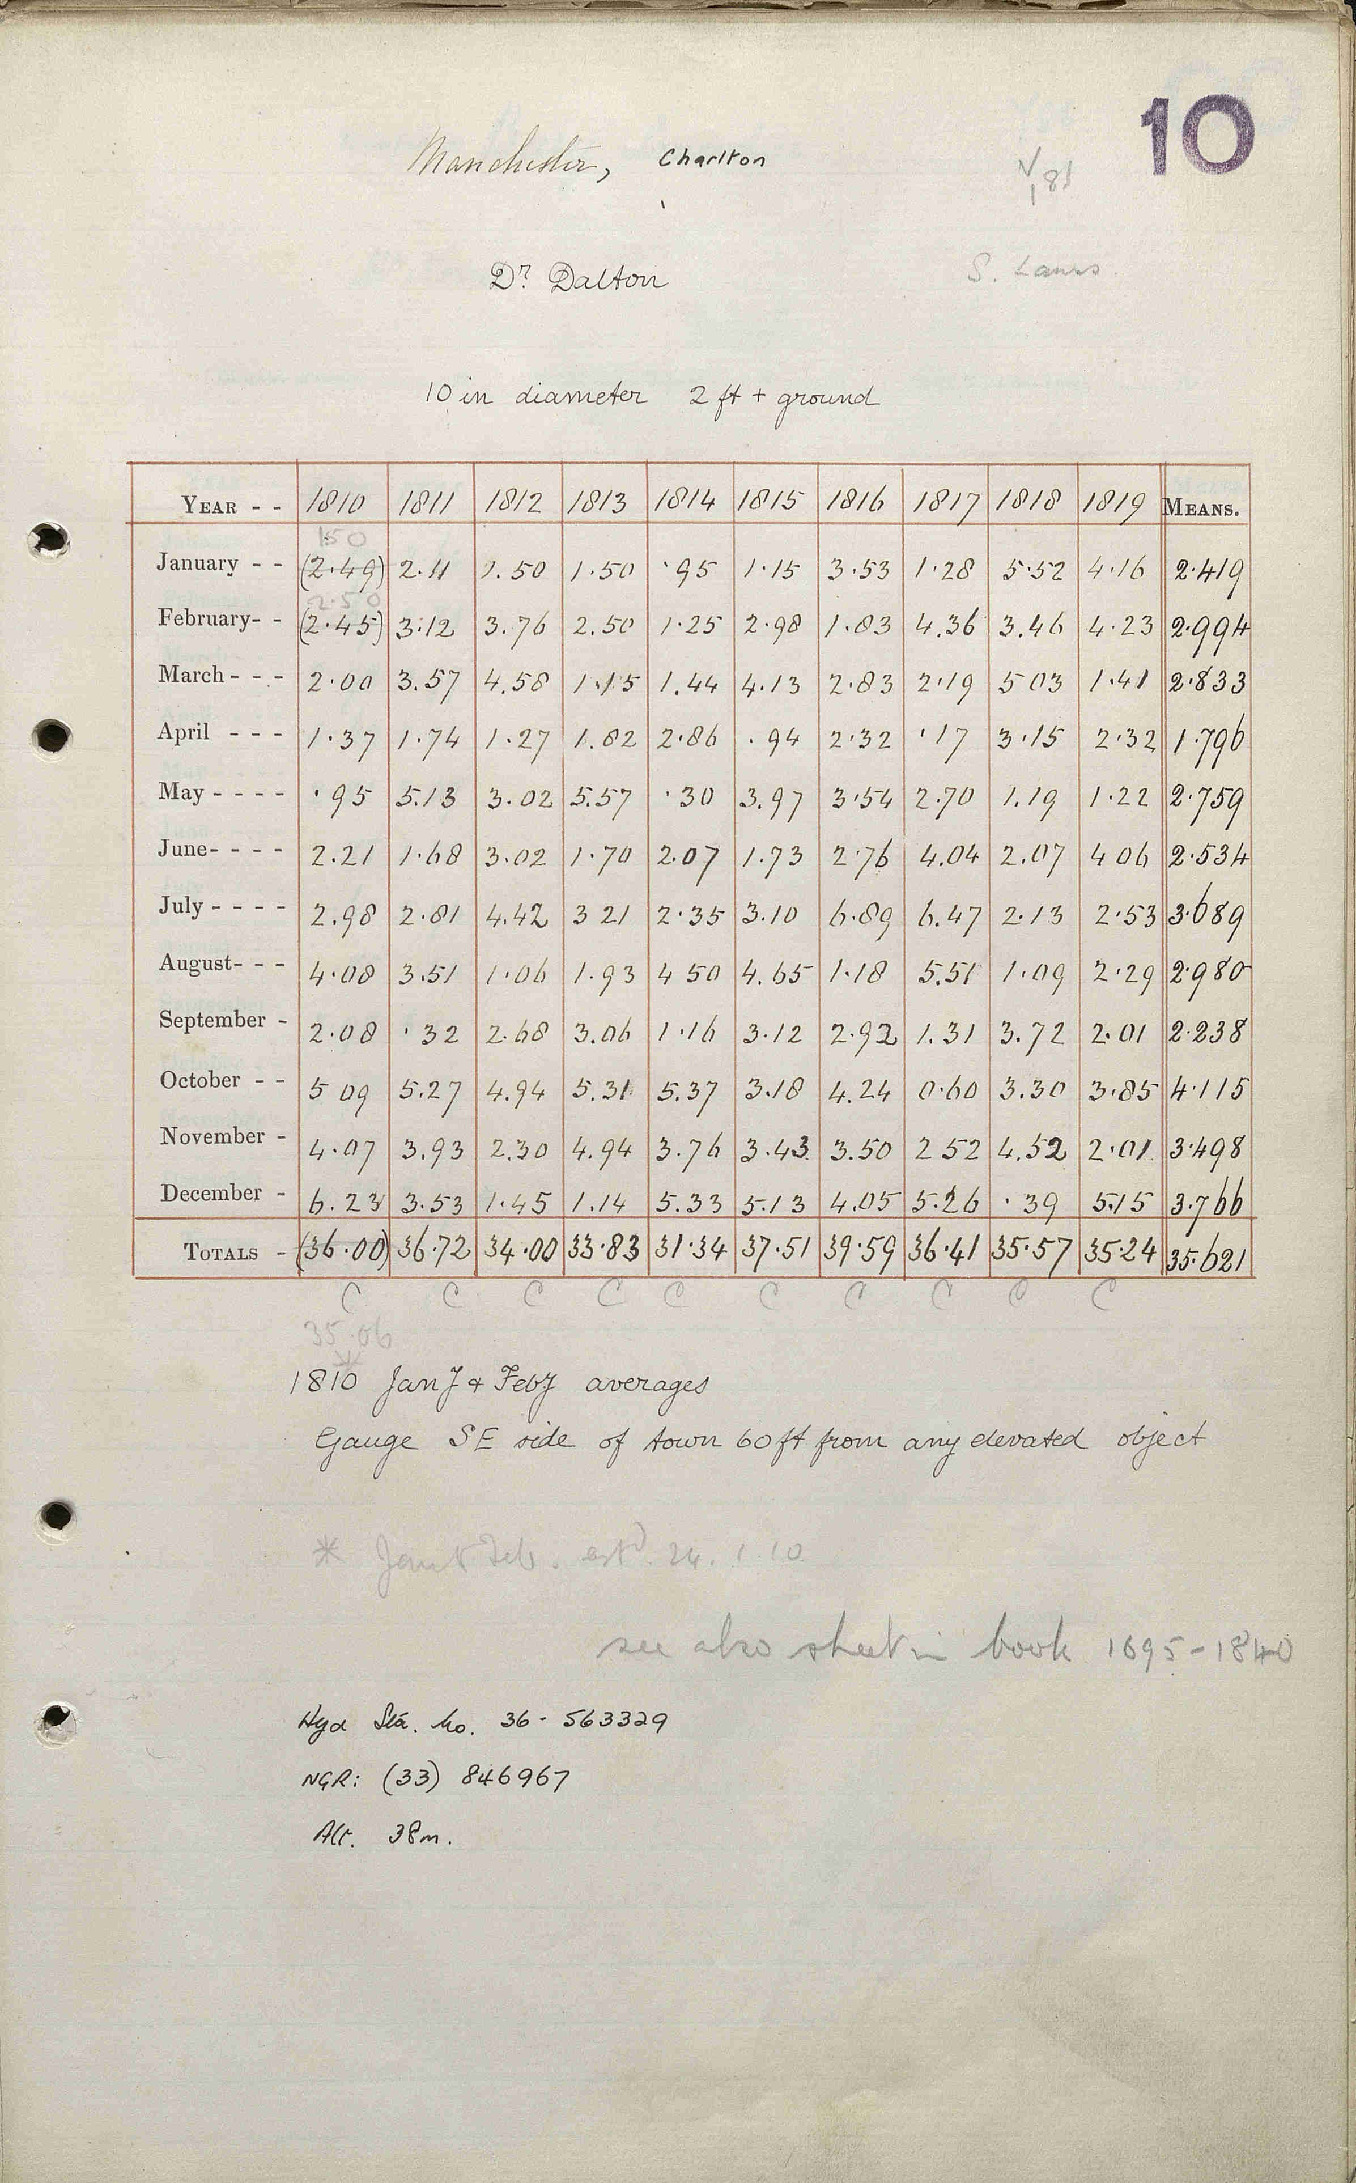 10
Manchester, Charlton
V/181
S. Lancs
Dr Dalton
10 in diameter 2 ft + ground
YEAR - - 1810 1811 1812 1813 1814 1815 1816 1817 1818 1819 MEANS.
1.50
January - - (2.49) 2.11 1.50 1.50 .95 1.15 3.53 1.28 5.52 4.16 2.419
2.50
February- - (2.45) 3.12 3.76 2.50 1.25 2.98 1.83 4.36 3.46 4.23 2.994
March - - - 2.00 3.57 4.58 1.15 1.44 4.13 2.83 2.19 5 03 1.41 2.833
April - - - 1.37 1.74 1.27 1.82 2.86 .94 2.32 .17 3.15 2.32 1.796
May - - - - .95 5.13 3.02 5.57 .30 3.97 3.54 2.70 1.19 1.22 2.759
June- - - - 2.21 1.68 3.02 1.70 2.07 1.73 2.76 4.04 2.07 4 06 2.534
July - - - - 2.98 2.81 4.42 3 21 2.35 3.10 6.89 6.47 2.13 2.53 3.689
August- - - 4.08 3.51 1.06 1.93 4 50 4.65 1.18 5.51 1.09 2.29 2.980
September - 2.08 .32 2.68 3.06 1.16 3.12 2.92 1.31 3.72 2.01 2.238
October - - 5 09 5.27 4.94 5.31 5.37 3.18 4.24 0.60 3.30 3.85 4.115
November - 4.07 3.93 2.30 4.94 3.76 3.43 3.50 2 52 4.52 2.01 3.498
December - 6.23 3.53 1.45 1.14 5.33 5.13 4.05 5.26 .39 5.15 3.766
TOTALS - (36.00) 36.72 34.00 33.83 31.34 37.51 39.59 36.41 35.57 35.24 35.621
C C C C C C C C C C
35.06
*
1810 Jany & Feby averages
Gauge SE side of town 60 ft from any elevated object
* Jan & Feb. estd. 24.1.10
see also sheet in book 1695-1840
Hyd Sta. No. 36 - 563329
NGR: (33) 846967
Alt. 38m.